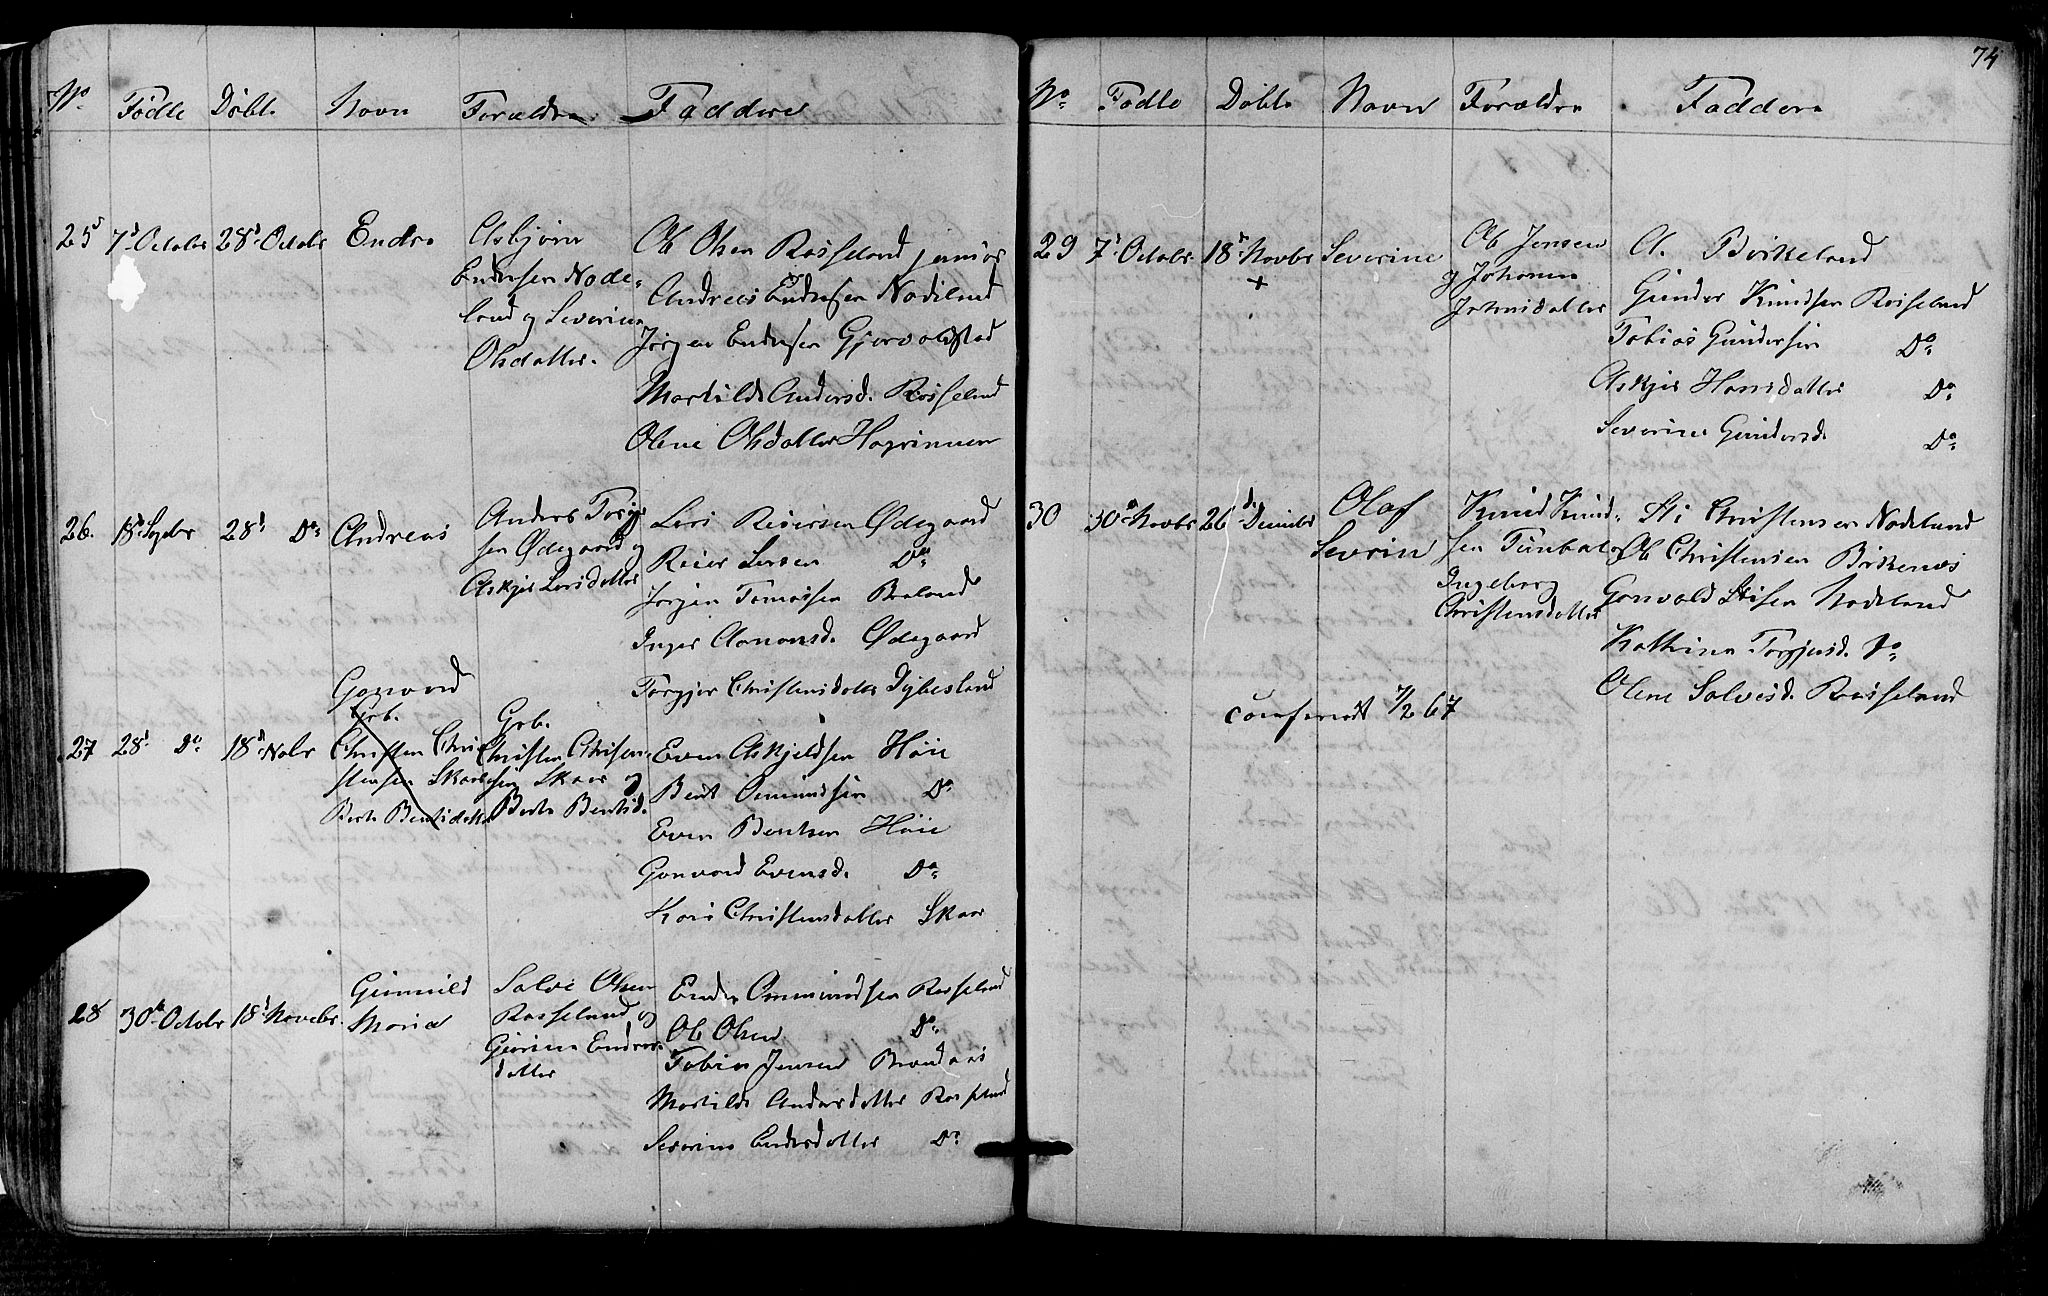 No Fødte Døbte Navn Forældre Faddere
25 7d October 28d Octobr Endre
Asbjørn
Endresen Node-
land og Severine
Olsdatter.
Ole Olsen Rosseland junior
Andreas Endresen Nodeland
Jørgen Endresen Gjervoldstad
Martilde Andersd. Rosseland
Olene Olsdatter
26. 18d 28d Do Andreas
Anders Torjs
sen Ødegaard og
Askjer Larsdatter
Lars Reiersen Ødegaard
Reier Larsen Do
Jørgen Tomassen
Inger Aanonsd. Ødegaard
Torgjer Christensdatter Dybesland
27 28d Do 18d Nobr
Gonvord
Grb.
Christen Chri
stensen Skaar
Berte Bentsdatter
Grb.
Christen Christen-
sen Skaar og
Berte Bentsd.
Even Askjeldsen Høie
Bent Omundsen Do
Even Bentsen Høie
Gonvord Evensd. Do
Kari Christensdatter Skaar
28 30te Octobr 18d Novebr.
Gunnild
Maria
Salve Olsen
Rosseland og
Gurine Endres
datter
Endre Ommundsen Rosseland
Ole Olsen Do
Tobias Jensen Brandaas
Martilde Andersdatter Rosseland
Severine Endersdatter Do
74
No Fødte Døbte Navn Forældre Faddere
29 7d Octobr 18d Novbr Severine
+
Ole Jensen
og Johanne
Johnsdatter
A. Birkeland
Gunder Knudsen Rosseland
Tobias Gundersen Do
Askjer Hansdatter Do
Severine Gundersd. Do
30 30d Novbr 26de Decmbr
Olaf
Severin
Knud Knud-
sen Tunbal og
Ingeborg
Christensdatter
Sti Christensen Nodeland
Ole Christensen Birkenes
Gonvald Stisen Nodeland
Kathrine Torgjusd. Do
Olene Salvesd. Rosseland
conferert 7/2 67